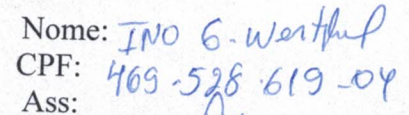 Nome: INO G. Westphal
CPF: 469-528.619-04
Ass: